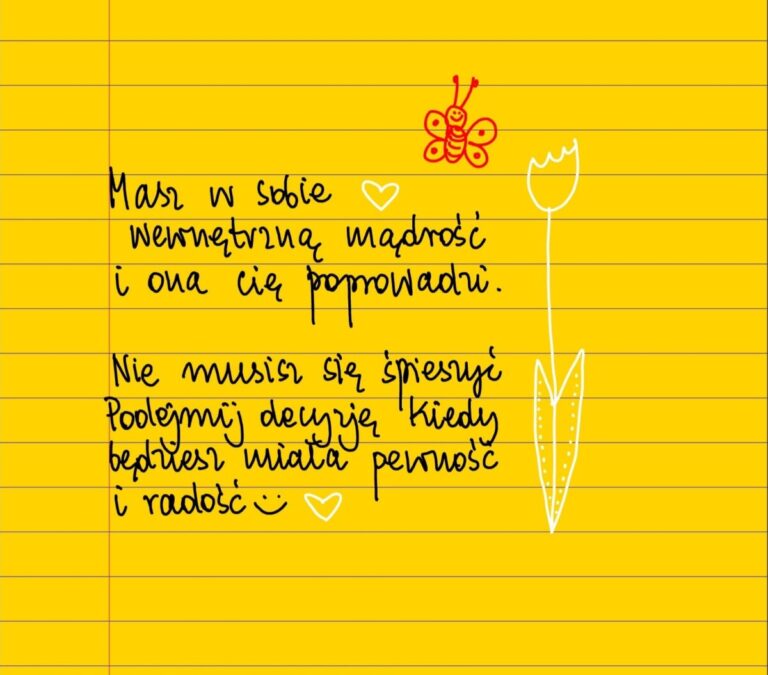 Masz w sobie
wewnętrzną mądrość
i ona cię poprowadzi.
Nie musisz się śpieszyć
Podejmij decyzję kiedy
będziesz miała pewność
i radość